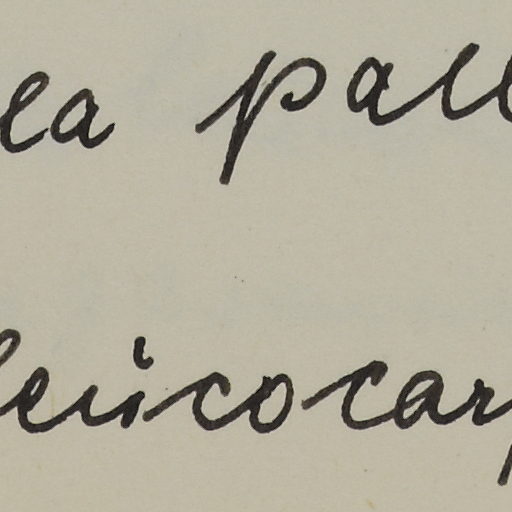 ea pall
leucocarp